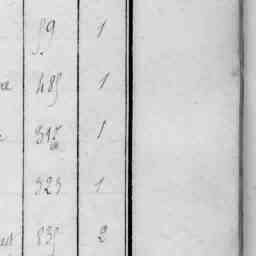 59 1
485 1
315 1
323 1
835 2